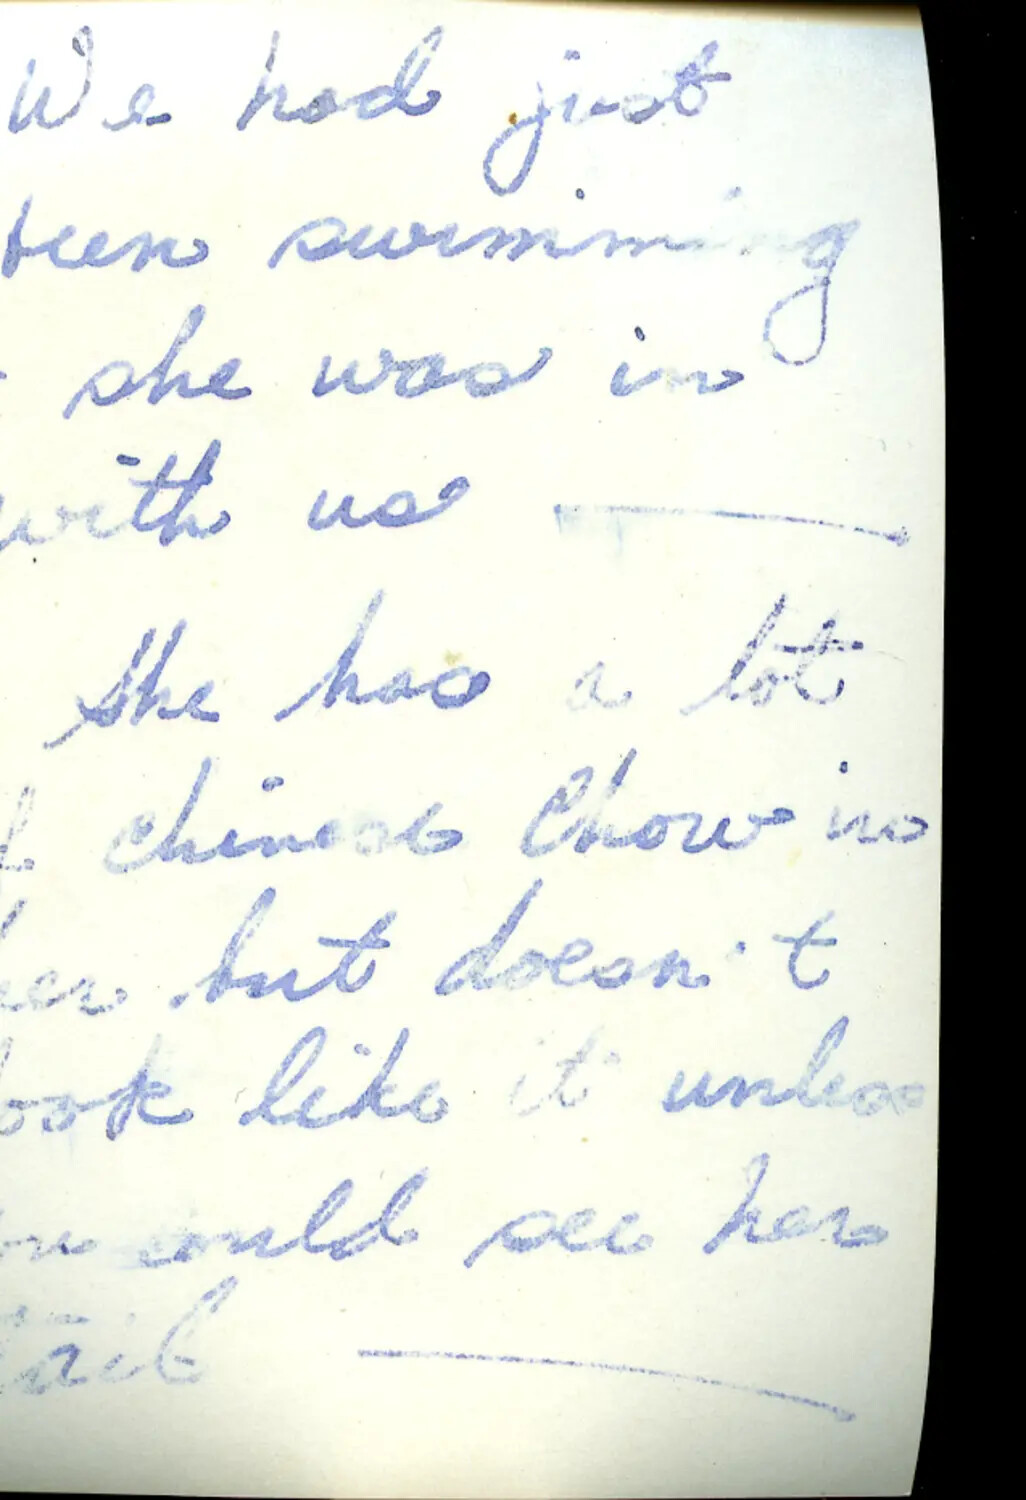 We had just
been swimming
she was in
with us —
She has a lot
chinese Chow in
her but doesn't
look like it unless
could see her
tail —